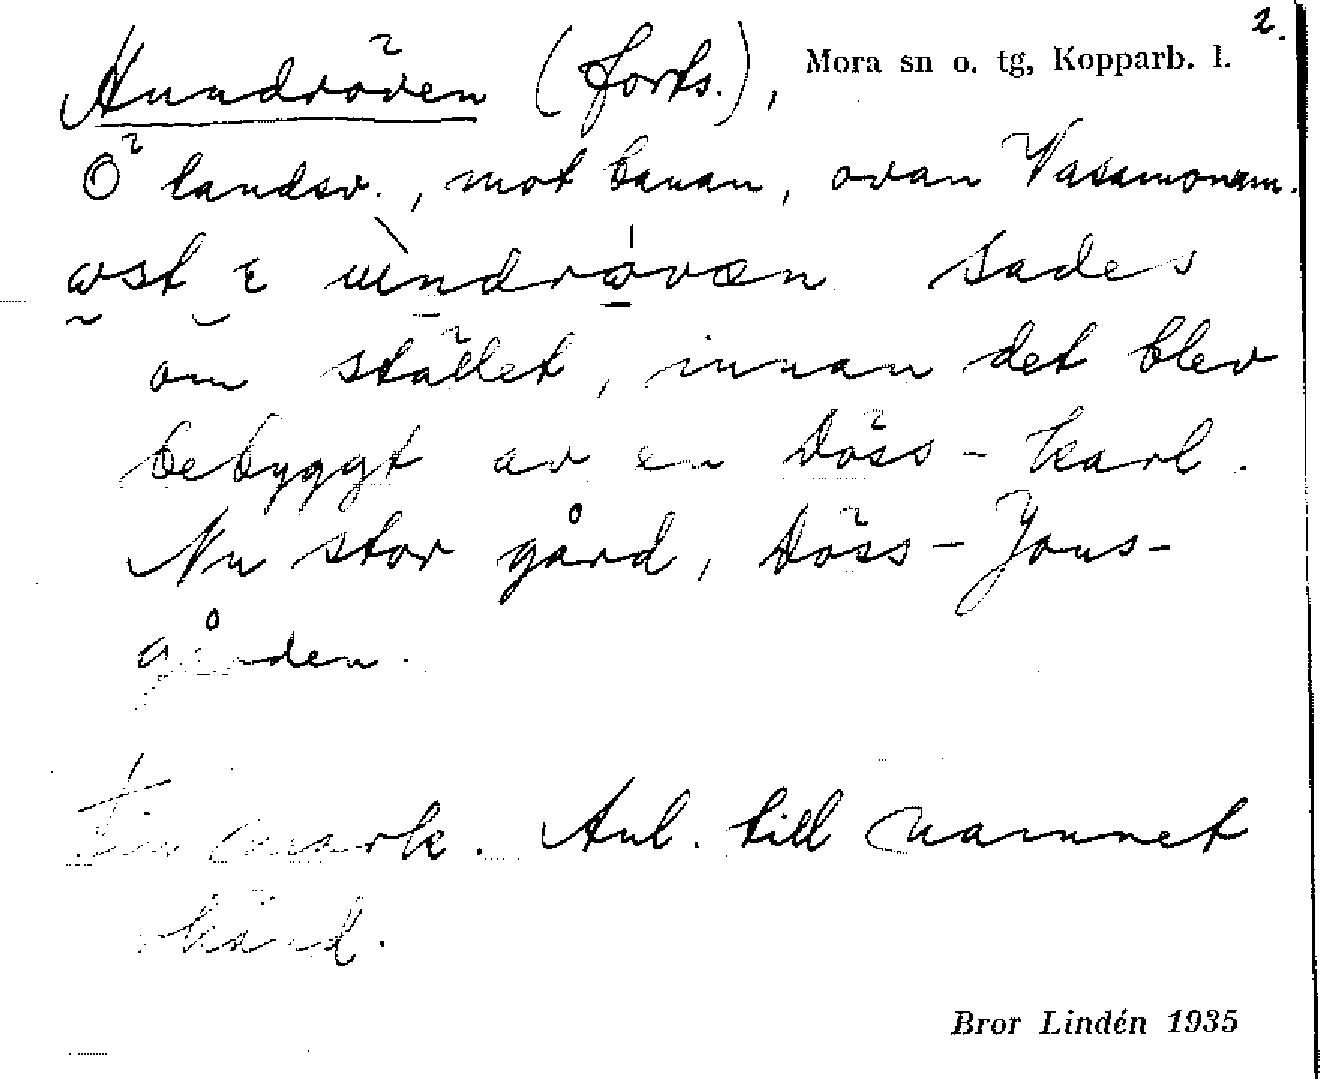 2.
Hundröven (forts.), Mora sn o. tg, Kopparb. l.
Ö landsv., mot banan, ovan Vasamonum.
om stället, innan det blev
bebyggt av en Döss-karl.
Nu stor gård, Döss-Jons-
gården.
Fin mark. Anl. till namnet
okänd.
Bror Lindén 1935